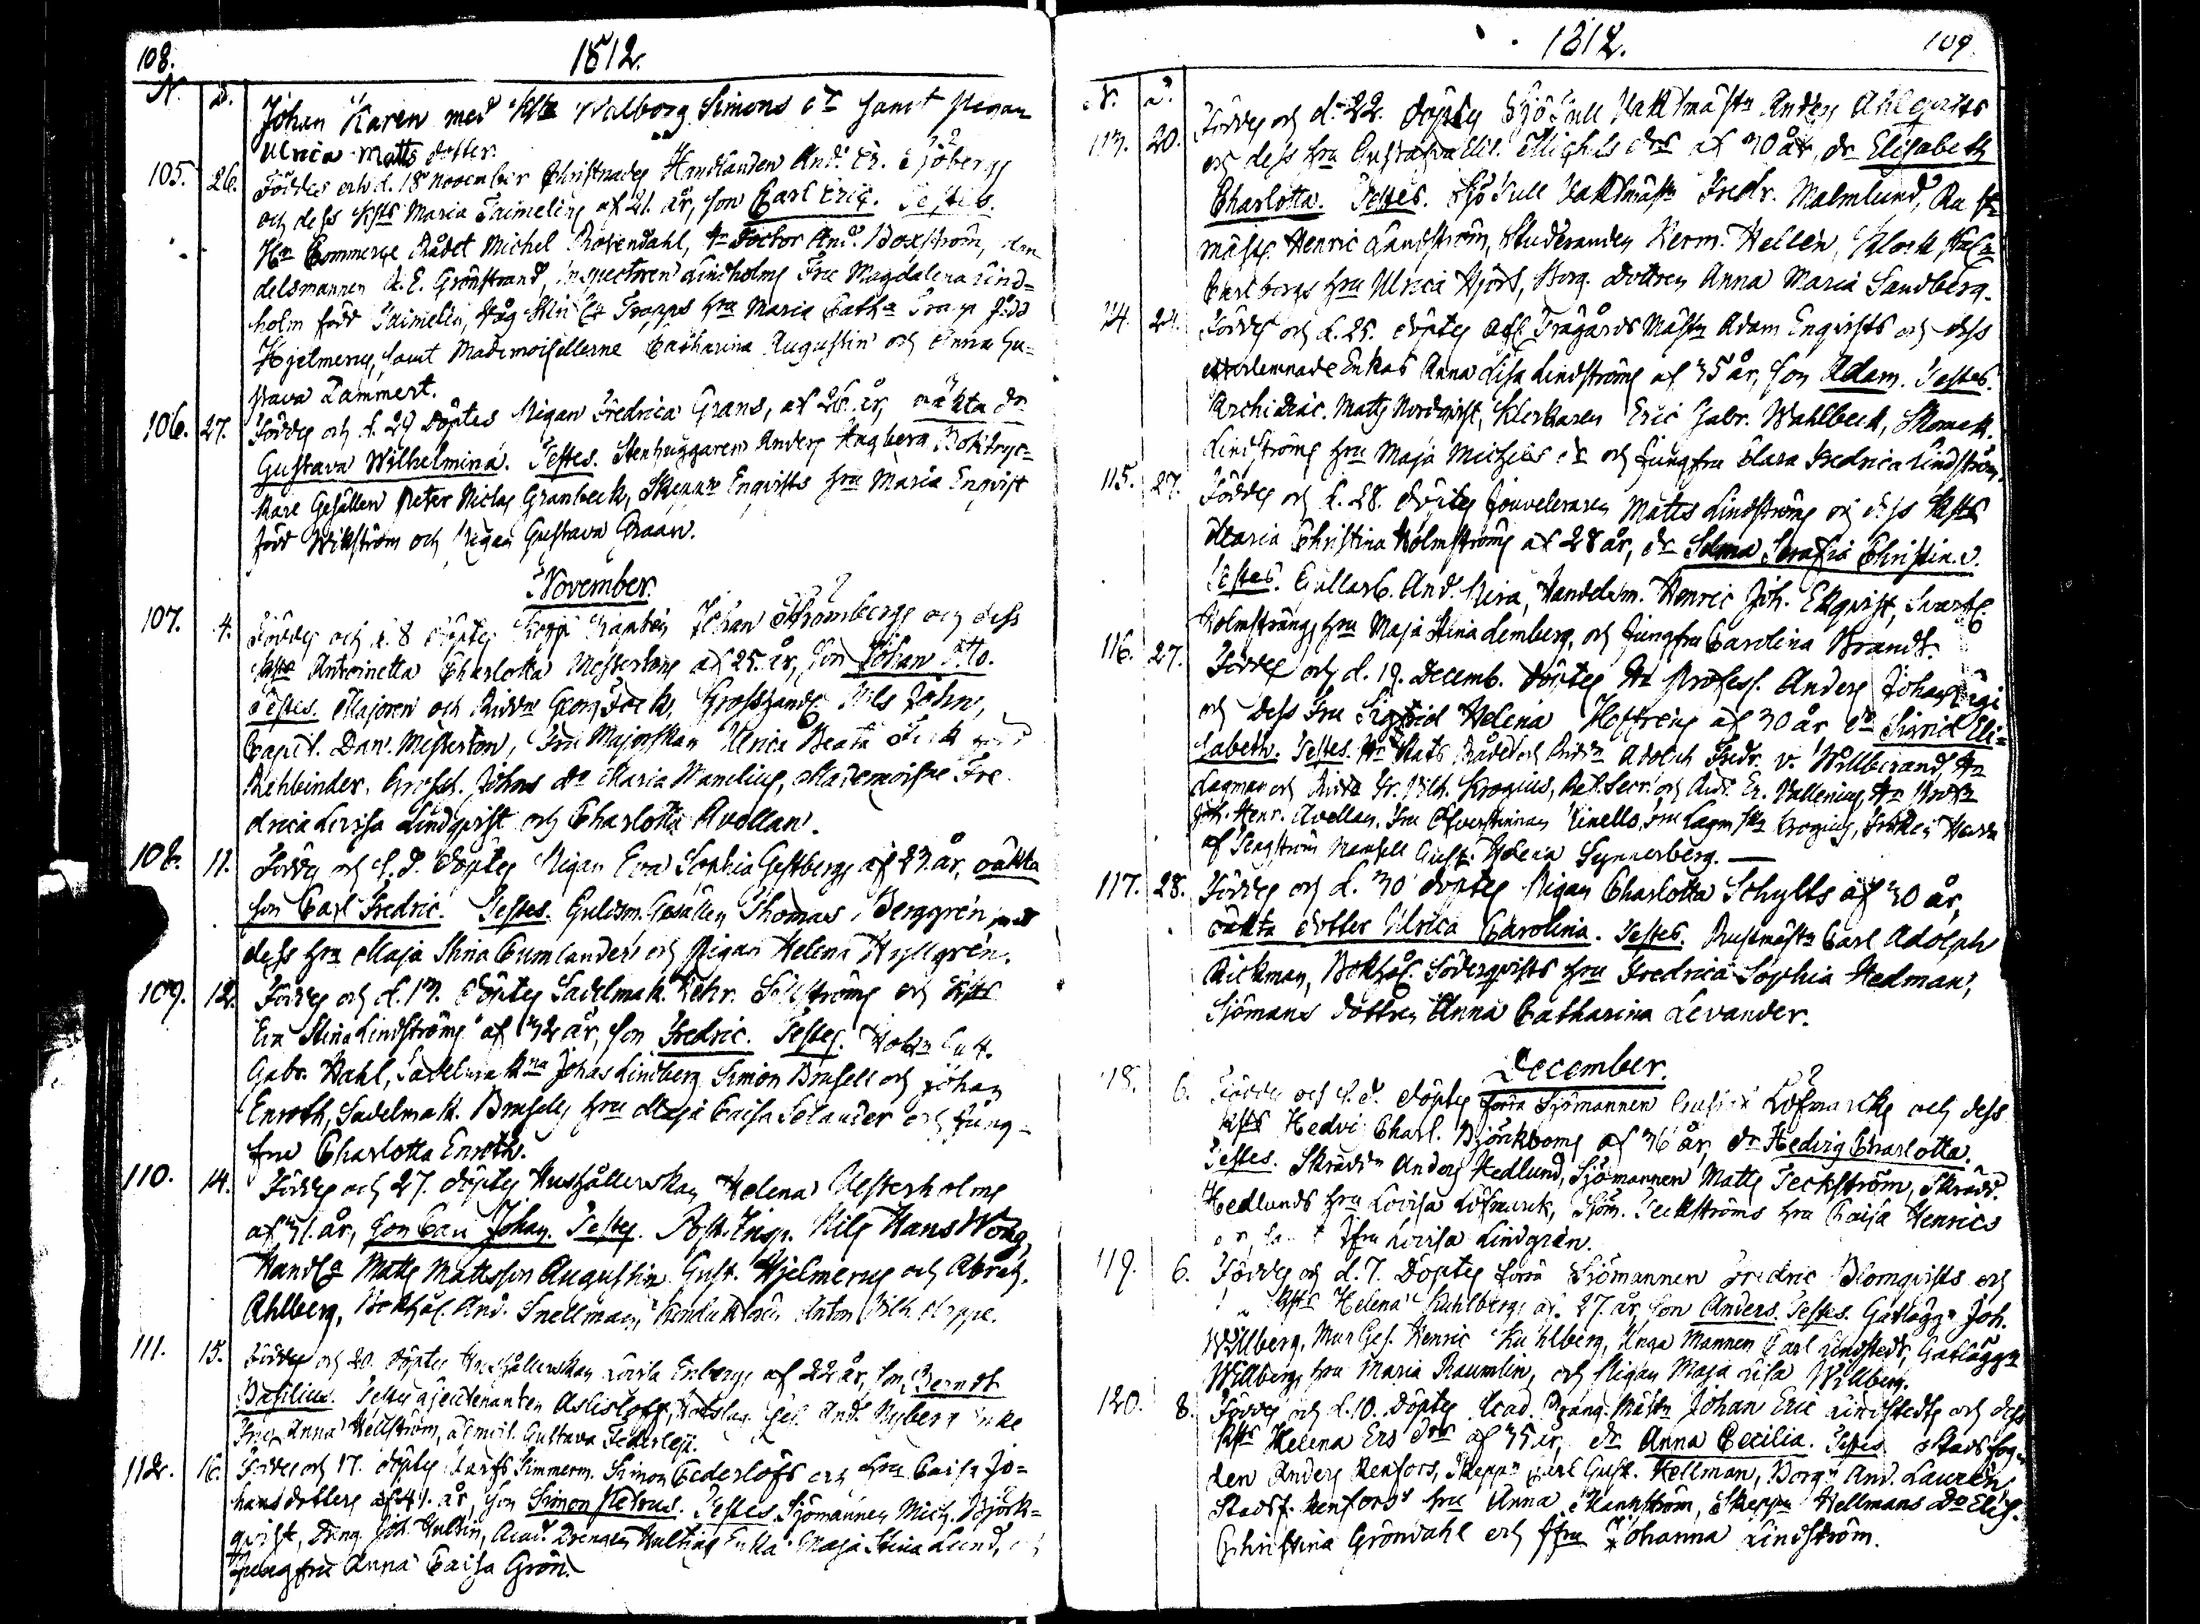 108.
1812.
N. D.
Johan Karen med Hst: Walborg Simons dr samt Pigan
Ulrica Matts dotter.
105. 26. Föddes och d. 18 November Christnades Handlanden And: Er. Sjöbergs
och dess Hsts Maria Taimelins af 21. år, son Carl Eric. Testes.
Hr Commerce Rådet Michel Rosendahl, Hr Doctor And: Boxström, Han
delsmannen A. E. Grönstrand, Inspectoren Lindholms Fru Magdalena Lind=
holm född Taimelin, Trapps Hru Maria Cath: Trapp född
Hjelmerus, samt Mademoisellerne Catharina Augustin och Anna Gu=
stava Lammert.
106. 27. Föddes och d. 29 döptes Pigan Fredrica Grans, af 26 år, oäkta dr
Gustava Wilhelmina. Testes. Stenhuggaren Anders Hagberg, Boktryc=
kare Gesällen Peter Niclas Granbeck, Skeppr Enqvists hru Maria Enqvist
född Wikström och Pigan Gustava Graan.
November.
107. 4. Föddes och d. 8 döptes Kapten Johan Strömbergs och dess
Hsts Antoinetta Charlotta Mestertons af 25. år, son Johan Otto.
Testes. Majoren och Riddn Georg Fock, Grosshandl. Nils John,
Capit. Dan. Mesterton, Fru Majorskan Ulrica Beata Fock född
Rehbinder, Grossh. Johns do Maria Wanelius, Mademoiselle Fre
drica Lovisa Lindqvist och Charlotta Avellan.
108. 11. Föddes och d. döptes Pigan Eva Sophia Gestbergs af 23 år, oäkta
son Carl Fredric. Testes. Guldsm. Gesällen Thomas Berggren med
dess hru Maja Stina Cumlander och Pigan Helena Hyllgren.
109. 12. Föddes och d. 13. döptes Sadelmak. Fehr. Sellströms och Hsts
Eva Stina Lindströms af 32 år, son Fredric. Testes.
Gabr. Wahl, Sadelmakrna Johan Lindberg Simon Brusell och Johan
Enroth, Sadelmak. Brusells hru Maja Caisa Selander och Jung=
fru Charlotta Enroth.
110. 14. Föddes och 27. döptes Hushållerskan Helena Westerholms
af 31. år, son Carl Johan. Testes. Post Insp. Nils Hans Wong,
Handl: Matts Mattsson Augustin Gust. Hjelmerus och Abrah.
Ahlberg, Bokhål. And. Snellman, Konduktören Anton Wilh. Hoppe.
111. 15. Föddes och 20. döptes Hushållerskan Lovisa Enbergs af 22 år, son Berndt
Basilius. Testes Lieutenanten Aslisloff, And: Nyberg Enke
Fru Anna Hellström, Gustava Federley.
112. 16. Föddes och 17. döptes Simmerm. Simon Cederlöfs och hru Caisa Jo=
hansdotters af 41. år, son Simon Petrus. Testes. Sjömannen Mich. Björk=
qvist, Dreng Joh. Hultin, Acad. Drengen Hultins Enka Maja Stina Lund, och
Jungfru Anna Caisa Grön.
1812. 109.
N. D.
113. 20. Föddes och d. 22. döptes Sjö Tull Vaktmästn Anders Ahlqvists
och dess hru Gustafva Elis. Michels drs af 30 år, dr Elisabeth
Charlotta. Testes. Sjö Tull Vaktmästn Fredr. Malmlund, Ru st
mäst. Henric Landström, Studeranden Herm. Hellen, Klock
Carlborgs hru Ulrica Hjort, Borg. dottren Anna Maria Sandberg.
114. 24. Föddes och d. 25. döptes afl. Trägårds Mästn Adam Enqvists och dess
efterlemnade Enkas Anna Lisa Lindströms af 35 år, son Adam. Testes.
Archidiac. Matts Nordqvist, Klockaren Eric Gabr. Wahlbeck, Skomak.
Lindströms hru Maja Michels dr och Jungfru Clara Fredrica Lindström.
115. 27. Föddes och d. 28. döptes Jouveleraren Matts Lindströms och dess Hsts
Maria Christina Holmströms af 28 år, dr Selma Serafia Christina.
Testes. Gullarb. And. Mira, Handelsm. Henric Joh. Ekqvist, Svarf.
Holmströms hru Maja Stina Lemberg, och Jungfru Carolina Brandt.
116. 27. Föddes och d. 19. Decemb. döptes Hr Profess. Anders Johan Lagi
och dess Fru Sigrid Helena Hoffréns af 30 år dr Sigrid Eli=
sabeth. Testes. Hr Stats Rådet och Riddn Adolph Fredr. v. Willbrand, Hr
Lagman och Riddn Fr. Wilh. Krogius, Ref. Secr. och Ridd. Er. Wallenius, Hr Prof:
Joh. Henr. Avellan. Fru Öfverstinnan Vinello, Fru Lagm: Krogius, Fröken Hedda
af Mamsell Gust. Helena Synnerberg.
117. 28. Föddes och d. 30 döptes Pigan Charlotta Schylts af 30 år,
oäkta dotter Ulrica Carolina. Testes. Rustmästn Carl Adolph
Rickman, Bokhål. Söderqvists hru Fredrica Sophia Hedman,
Sjömans dottren Anna Catharina Levander.
December.
118. 6. Föddes och d. döptes förra Sjömannen Gustav Löfmarcks och dess
Hsts Hedvi: Charl. Björkboms af 36 år, dr Hedvig Charlotta.
Testes. Skräddn Anders Hedlund, Sjömannen Matts Teckström, Skrädd.
Hedlunds hru Lovisa Löfmarck, Sjöm. Teckströms hru Caisa Henrics
dr, samt Jfru Lovisa Lindgrén.
119. 6. Föddes och d. 7. döptes förra Sjömannen Fredric Blomqvists och
Hsts Helena Kuhlbergs af 27. år, son Anders. Testes. Gatlägg: Joh.
Willberg, Mur Ges. Henric Kuhlberg, Unga Mannen Carl Lindstedt, Gatläggn
Willbergs hru Maria Raumlin, och Pigan Maja Lisa Willberg.
120. 8. Föddes och d. 10. döptes Acad. Mästn Johan Eric Lindstedts och dess
Hsts Helena Ers drs af 35 år, dr Anna Cecilia. Testes Stadsfog=
den Anders Renfors, Skeppn Carl Gust. Hellman, Borgn And. Laurén,
Stadsf. Renfors's hru Anna Mannström, Skeppn Hellmans Do Elis.
Christina Gröndahl och Jfru Johanna Lindström.